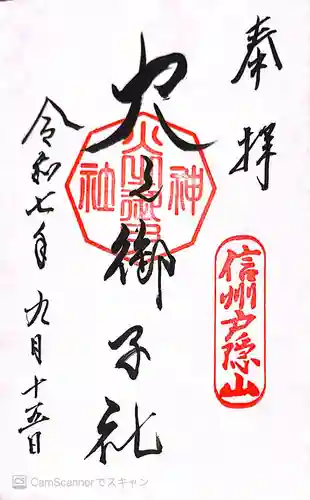 奉拝
信州戸隠山
火之御子社
火之御子
神社
令和七年九月十五日
CamScannerでスキャン